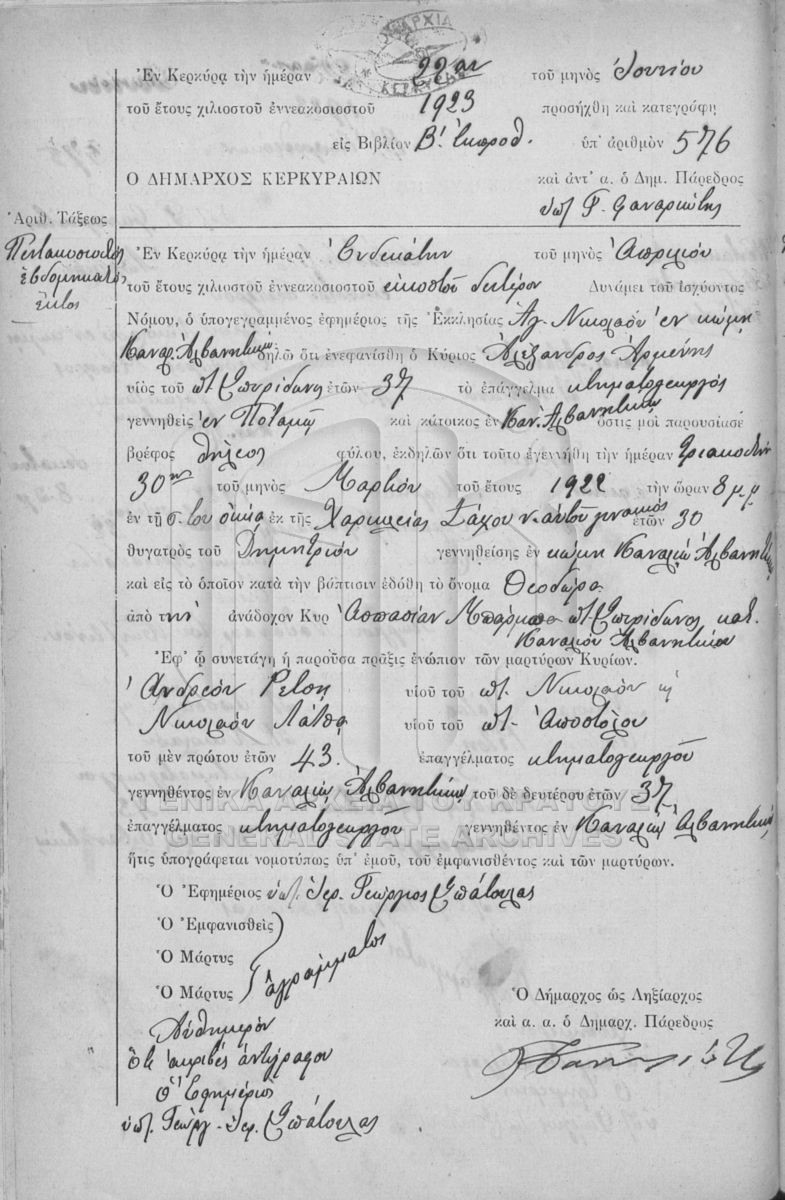 ΔΗΜΑΡΧΙΑ ΚΕΡΚΥΡΑΙΩΝ
Ἐν Κερκύρᾳ τὴν ἡμέραν 22αν τοῦ μηνὸς Ἰουνίου
τοῦ ἔτους χιλιοστοῦ ἐννεακοσιοστοῦ 1923 προσήχθη καὶ κατεγράφη
εἰς Βιβλίον Β! Ἐκπροθ. ὑπ' ἀριθμὸν 576
Ο ΔΗΜΑΡΧΟΣ ΚΕΡΚΥΡΑΙΩΝ καὶ ἀντ' α. ὁ Δημ. Πάρεδρος
ὑπ. Φαναριώτης
Ἀριθ. Τάξεως
Πεντακοσιοστὸς
ἑβδομηκοστὸς
ἕκτος
Ἐν Κερκύρᾳ τὴν ἡμέραν Ἑνδεκάτην τοῦ μηνὸς Ἀπριλίου
τοῦ ἔτους χιλιοστοῦ ἐννεακοσιοστοῦ εἰκοστοῦ δευτέρου Δυνάμει τοῦ ἰσχύοντος
Νόμου, ὁ ὑπογεγραμμένος ἐφημέριος τῆς Ἐκκλησίας Ἁγ. Νικολάου ἐν κώμῃ
Καναλ. Ἀλβανητικῶ δηλῶ ὅτι ἐνεφανίσθη ὁ Κύριος Ἀλέξανδρος Ἀρμένης
υἱὸς τοῦ ποτ. Σπυρίδωνος ἐτῶν 37 τὸ ἐπάγγελμα κτηματογεωργὸς
γεννηθεὶς ἐν Ποταμῷ καὶ κάτοικος ἐν Καν. Ἀλβανητικῶ ὅστις μοὶ παρουσίασε
βρέφος θήλεος φύλου, ἐκδηλῶν ὅτι τοῦτο ἐγεννήθη τὴν ἡμέραν τριακοστὴν
30ην τοῦ μηνὸς Μαρτίου τοῦ ἔτους 1922 τὴν ὥραν 8 μ.μ
ἐν τῇ σ. του οἰκίᾳ ἐκ τῆς Χαρικλείας Σάχου ν. αὐτοῦ γυναικὸς ἐτῶν 30
θυγατρὸς τοῦ Δημητρίου γεννηθείσης ἐν κώμῃ Καναλίῳ Ἀλβανητικῶ
καὶ εἰς τὸ ὁποῖον κατὰ τὴν βάπτισιν ἐδόθη τὸ ὄνομα Θεοδώρα
ἀπὸ τὴν ἀνάδοχον Κυρ Ἀσπασίαν ποτ. Σπυρίδωνος κατ.
Καναλίου Ἀλβανητικῶν
Ἐφ' ᾧ συνετάγη ἡ παροῦσα πρᾶξις ἐνώπιον τῶν μαρτύρων Κυρίων.
Ἀνδρέου Ρέτση υἱοῦ τοῦ ποτ. Νικολάου κ
Νικολάου Λάτσα υἱοῦ τοῦ ποτ. Ἀποστόλου
τοῦ μὲν πρώτου ἐτῶν 43. ἐπαγγέλματος κτηματογεωργοῦ
γεννηθέντος ἐν Καναλίῳ Ἀλβανητικῶ τοῦ δὲ δευτέρου ἐτῶν 37
ΓΕΝΙΚΑ ΑΡΧΕΙΑ ΤΟΥ ΚΡΑΤΟΥΣ
ἐπαγγέλματος κτηματογεωργοῦ γεννηθέντος ἐν Καναλίῳ Ἀλβανητικῶ
GENERAL STATE ARCHIVES
ἥτις ὑπογράφεται νομοτύπως ὑπ' ἐμοῦ, τοῦ ἐμφανισθέντος καὶ τῶν μαρτύρων.
Ὁ Ἐφημέριος ὑπ. Ἱερ. Γεώργιος Σπάτουλας
Ὁ Ἐμφανισθεὶς
Ὁ Μάρτυς
Ὁ Μάρτυς
ἀγράμματοι
Ὁ Δήμαρχος ὡς Ληξίαρχος
καὶ α. α. ὁ Δημαρχ. Πάρεδρος
Αὐθημερὸν
Ὅτι ἀκριβὲς ἀντίγραφον
Ὁ Ἐφημέριος
ὑπ. Γεώργ. Ἱερ. Σπάτουλας